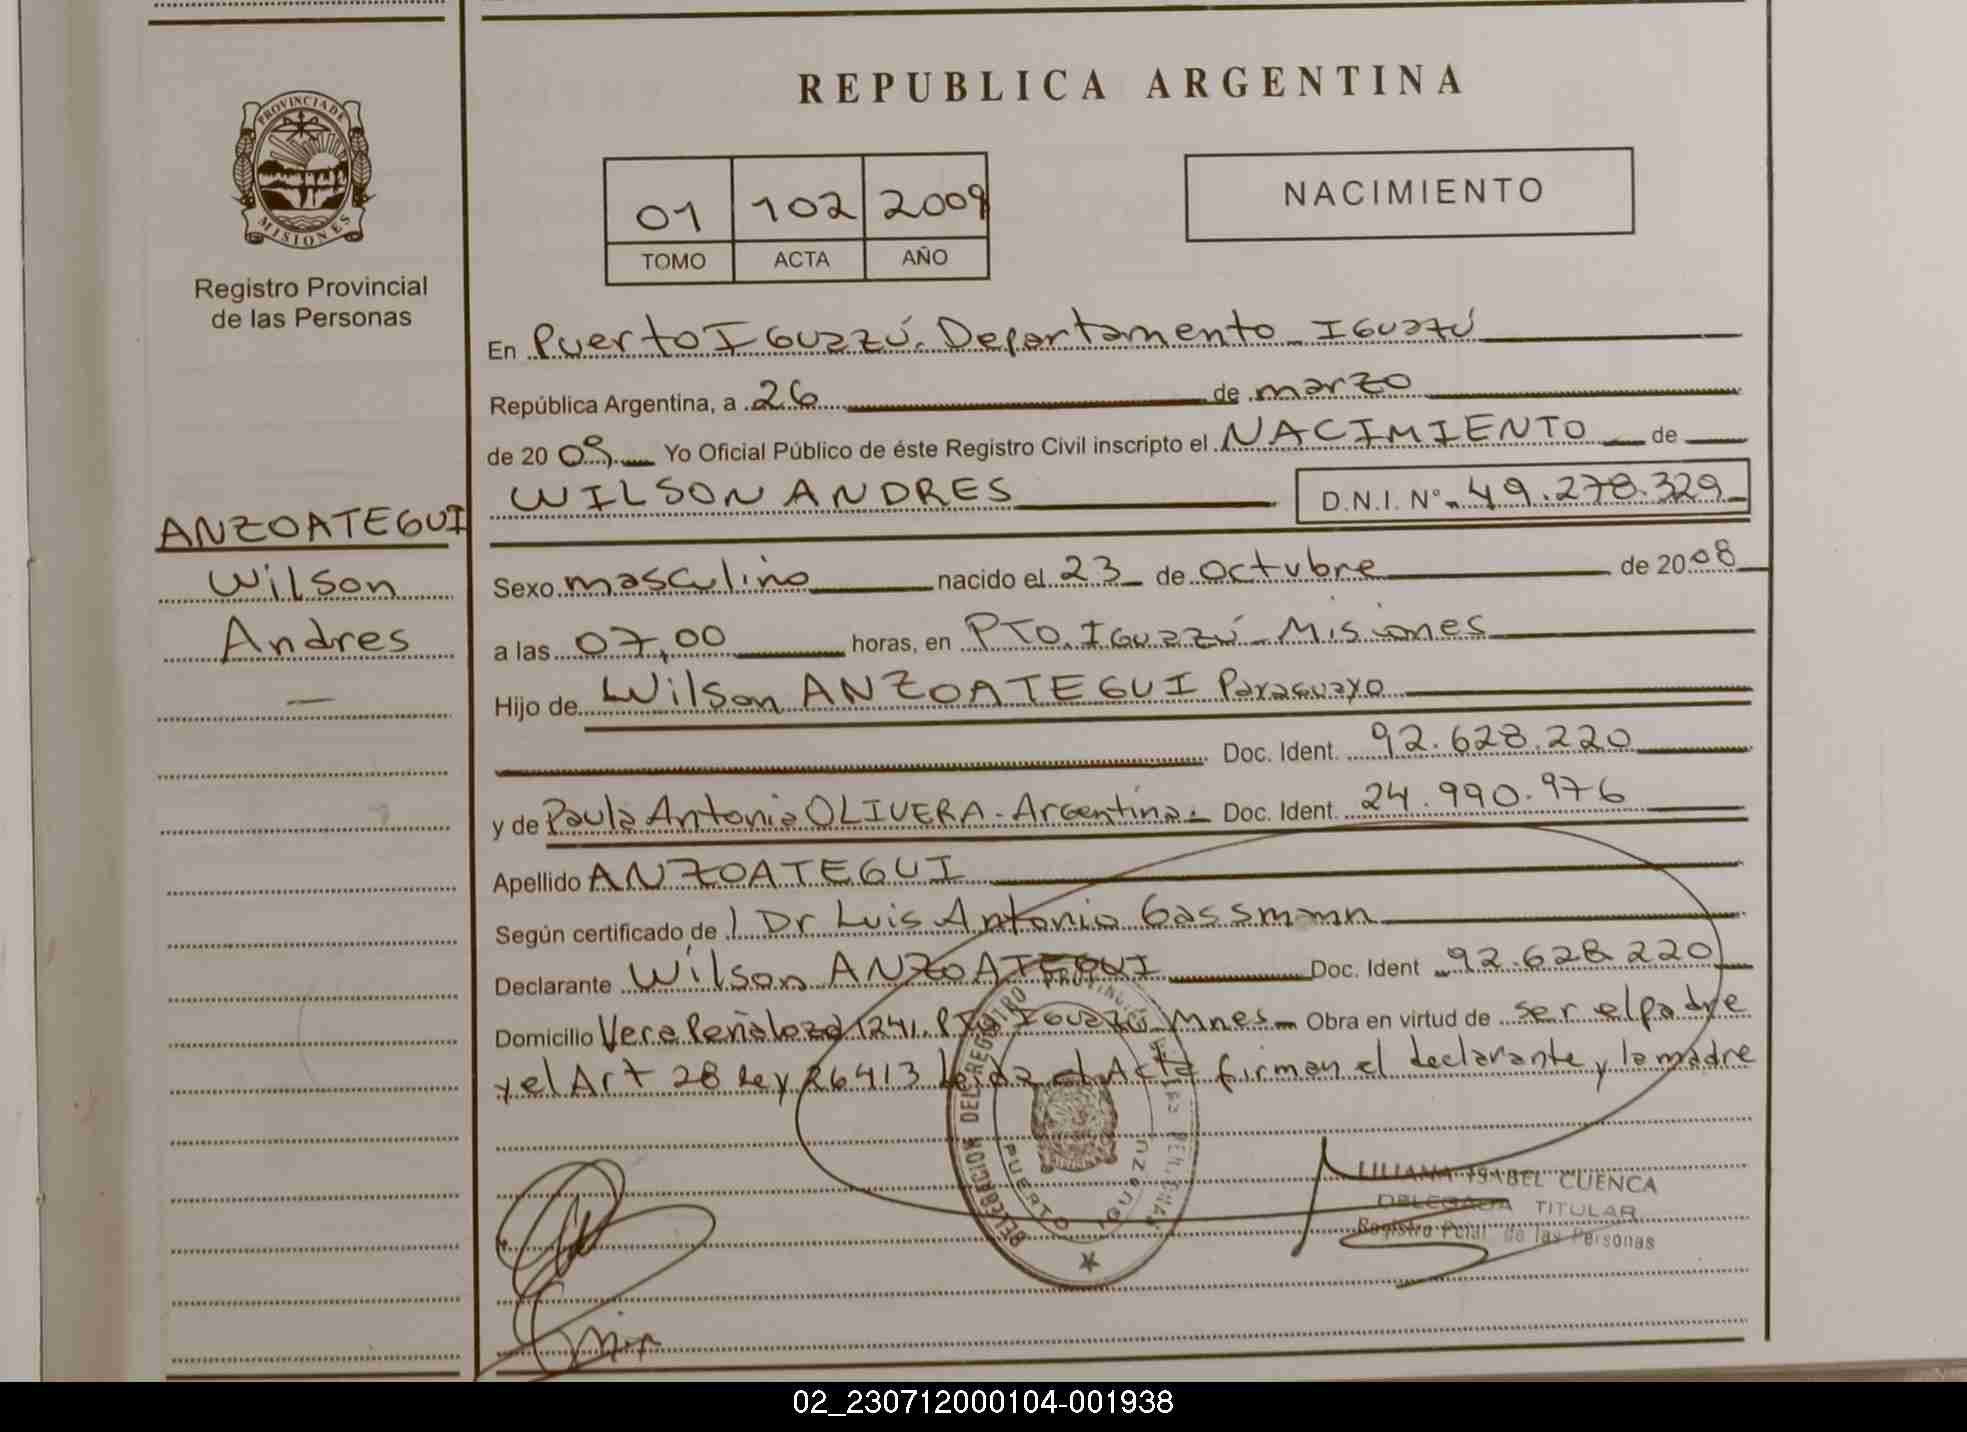 REPUBLICA ARGENTINA
PROVINCIA DE
MISIONES
Registro Provincial
de las Personas
01 102 2009
TOMO ACTA AÑO
NACIMIENTO
En Puerto Iguazú. Departamento Iguazú
República Argentina, a 26 de marzo
de 2009 Yo Oficial Público de éste Registro Civil inscripto el NACIMIENTO de
WILSON ANDRES D.N.I. Nº 49.278.329
ANZOATEGUI
Wilson
Andres
Sexo masculino nacido el 23 de octubre de 2008
a las 07,00 horas, en PTO. Iguazú - Misiones
Hijo de Wilson ANZOATEGUI Paraguayo
Doc. Ident. 92.628.220
y de Paula Antonia OLIVERA - Argentina. Doc. Ident. 24.990.976
Apellido ANZOATEGUI
Según certificado de l Dr Luis Antonio Gassmann
Declarante Wilson ANZOATEGUI Doc. Ident 92.628.220
Domicilio Vera Peñaloza 1241. Pto Iguazú - Mnes - Obra en virtud de ser el padre
y el Art 28 Ley 26413 leida el Acta firman el declarante y la madre
DELEGACION DEL REGISTRO PROVINC. DE LAS PERSONAS
PUERTO IGUAZU
LILIANA ISABEL CUENCA
DELEGADA TITULAR
Registro Pcial de las Personas
02_230712000104-001938